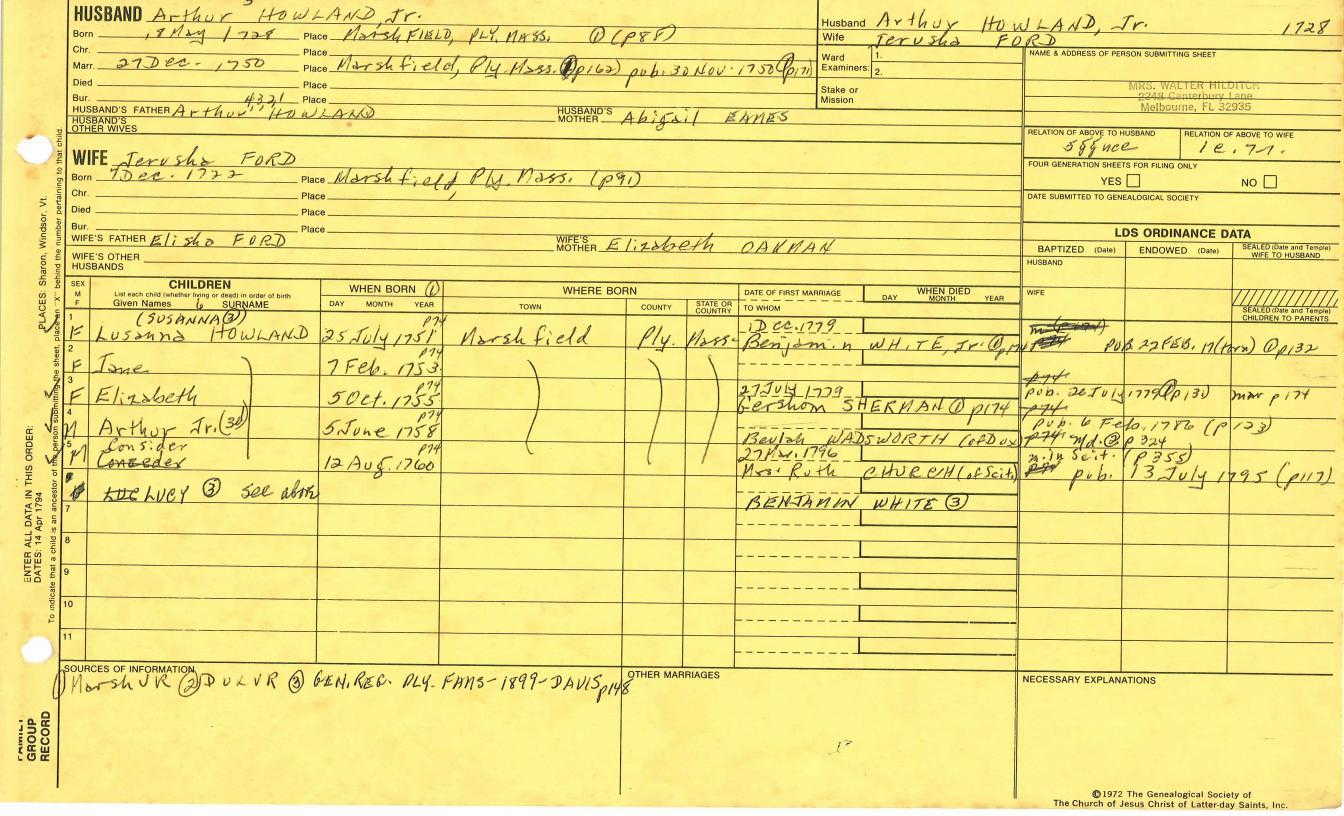 HUSBAND Arthur HOWLAND, Jr.
Born 18 May 1728 Place MarshFIELD, PLY, MASS. ① (p88)
Chr. Place
Marr. 27 Dec. 1750 Place Marshfield, Ply. Mass. ① p162) pub. 30 Nov. 1750 (① p171
Died Place
Bur. 4321 Place
HUSBAND'S FATHER Arthur HOWLAND HUSBAND'S MOTHER Abigail EAMES
HUSBAND'S OTHER WIVES
WIFE Jerusha FORD
Born 7 Dec. 1722 Place Marshfield, Ply. Mass. (p91)
Chr. Place
Died Place
Bur. Place
WIFE'S FATHER Elisha FORD WIFE'S MOTHER Elizabeth OAKMAN
WIFE'S OTHER HUSBANDS
Husband Arthur HOWLAND, Jr. 1728
Wife Jerusha FORD
Ward Examiners: 1.
2.
Stake or Mission
NAME & ADDRESS OF PERSON SUBMITTING SHEET
MRS. WALTER HILDITCH
2243 Canterbury Lane
Melbourne, FL 32935
RELATION OF ABOVE TO HUSBAND RELATION OF ABOVE TO WIFE
FOUR GENERATION SHEETS FOR FILING ONLY
YES NO
DATE SUBMITTED TO GENEALOGICAL SOCIETY
LDS ORDINANCE DATA
BAPTIZED (Date) ENDOWED (Date) SEALED (Date and Temple) WIFE TO HUSBAND
HUSBAND
WIFE
SEALED (Date and Temple) CHILDREN TO PARENTS
SEX M F
CHILDREN
List each child (whether living or dead) in order of birth
Given Names SURNAME
WHEN BORN ①
DAY MONTH YEAR
WHERE BORN
TOWN COUNTY STATE OR COUNTRY
DATE OF FIRST MARRIAGE
TO WHOM
WHEN DIED
DAY MONTH YEAR
1 (SUSANNA ③) p74 1 Dec. 1779
F Lusanna HOWLAND 25 July 1751 Marshfield Ply. Mass. Benjamin WHITE, Jr. ① PUB. 22 FEB. ① p132
2 p74
F Jane 7 Feb. 1753
3 p74 27 July 1779 pub. 26 July 1779 mar p174
F Elizabeth 5 Oct. 1755 Gershom SHERMAN ① p174
4 p74 pub. 6 Feb. 1786 (p123)
M Arthur Jr. (3d) 5 June 1758 Beulah WADSWORTH (of Dux) md. ② p324
5 Consider p74 27 Mar. 1796 m. in Scit. (p355)
M 12 Aug. 1760 Mrs. Ruth CHURCH (of Scit) pub. 13 July 1795 (p117)
LUCY ③ see above
7 BENJAMIN WHITE ③
8
9
10
11
SOURCES OF INFORMATION
① Marsh VR ② DUX VR ③ GEN. REG. PLY. FAMS - 1899 - DAVIS p148
OTHER MARRIAGES
NECESSARY EXPLANATIONS
©1972 The Genealogical Society of
The Church of Jesus Christ of Latter-day Saints, Inc.
ENTER ALL DATA IN THIS ORDER:
DATES: 14 Apr 1794
PLACES: Sharon, Windsor, Vt.
To indicate that a child is an ancestor of the person submitting the sheet, place an "X" behind the number pertaining to that child.
FAMILY GROUP RECORD